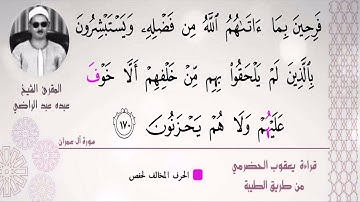 فَرِحِينَ بِمَا ءَاتَىٰهُمُ ٱللَّهُ مِن فَضۡلِهِۦ وَيَسۡتَبۡشِرُونَ
بِٱلَّذِينَ لَمۡ يَلۡحَقُواْ بِهِم مِّنۡ خَلۡفِهِمۡ أَلَّا خَوۡفَ
عَلَيۡهُمۡ وَلَا هُمۡ يَحۡزَنُونَ ١٧٠
المقرئ الشيخ
عبده عبد الراضي
سورة آل عمران
الحرف المخالف لحفص
قراءة يعقوب الحضرمي
من طريق الطيبة